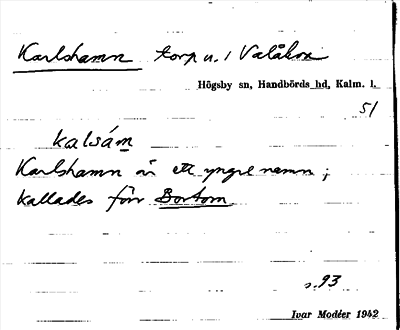 Karlshamn torp u. 1 Valåkra
Högsby sn, Handbörds hd, Kalm. l.
51
kalsám
Karlshamn är ett yngre namn;
kallades förr Bortom
s. 93
Ivar Modéer 1942